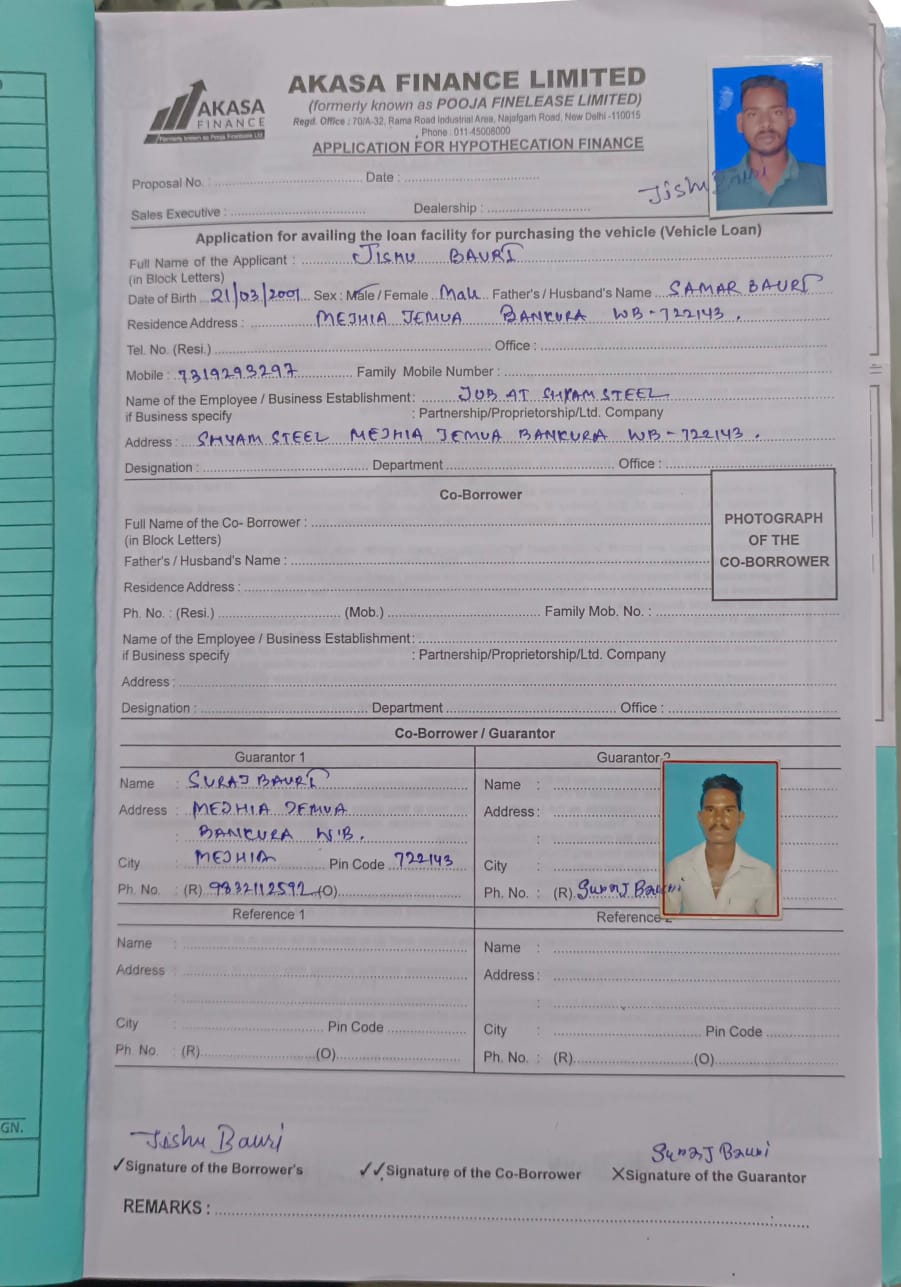 AKASA FINANCE LIMITED
AKASA
FINANCE
(formerly known as POOJA FINELEASE LIMITED)
Regd. Office : 70/A-32, Rama Road Industrial Area, Najafgarh Road, New Delhi -110015
Formerly known as Pooja Finelease Ltd.
Phone : 011-45008000
APPLICATION FOR HYPOTHECATION FINANCE
Proposal No. : Date :
Jishu Bauri
Sales Executive : Dealership :
Application for availing the loan facility for purchasing the vehicle (Vehicle Loan)
Full Name of the Applicant : JISHU BAURI
(in Block Letters)
Date of Birth 21/03/2001 Sex : Male / Female Male Father's / Husband's Name SAMAR BAURI
Residence Address : MEJHIA JEMUA BANKURA WB - 722143 .
Tel. No. (Resi.) Office :
Mobile : 7319293297 Family Mobile Number :
Name of the Employee / Business Establishment: JOB AT SHYAM STEEL
if Business specify : Partnership/Proprietorship/Ltd. Company
Address : SHYAM STEEL MEJHIA JEMUA BANKURA WB - 722143 .
Designation : Department Office :
Co-Borrower
Full Name of the Co- Borrower :
(in Block Letters)
PHOTOGRAPH
OF THE
CO-BORROWER
Father's / Husband's Name :
Residence Address :
Ph. No. : (Resi.) (Mob.) Family Mob. No. :
Name of the Employee / Business Establishment:
if Business specify : Partnership/Proprietorship/Ltd. Company
Address :
Designation : Department Office :
Co-Borrower / Guarantor
Guarantor 1
Name : SURAJ BAURI
Address : MEJHIA JEMUA
: BANKURA W.B.
City : MEJHIA Pin Code 722143
Ph. No. (R) 9832112592 (O)
Guarantor 2
Name :
Address :
:
City :
Ph. No. : (R) Suraj Bauri
Reference 1
Name :
Address :
:
City : Pin Code
Ph. No. : (R) (O)
Reference
Name :
Address :
:
City : Pin Code
Ph. No. : (R) (O)
Jishu Bauri
✓Signature of the Borrower's
✓✓Signature of the Co-Borrower
Suraj Bauri
XSignature of the Guarantor
REMARKS :
GN.